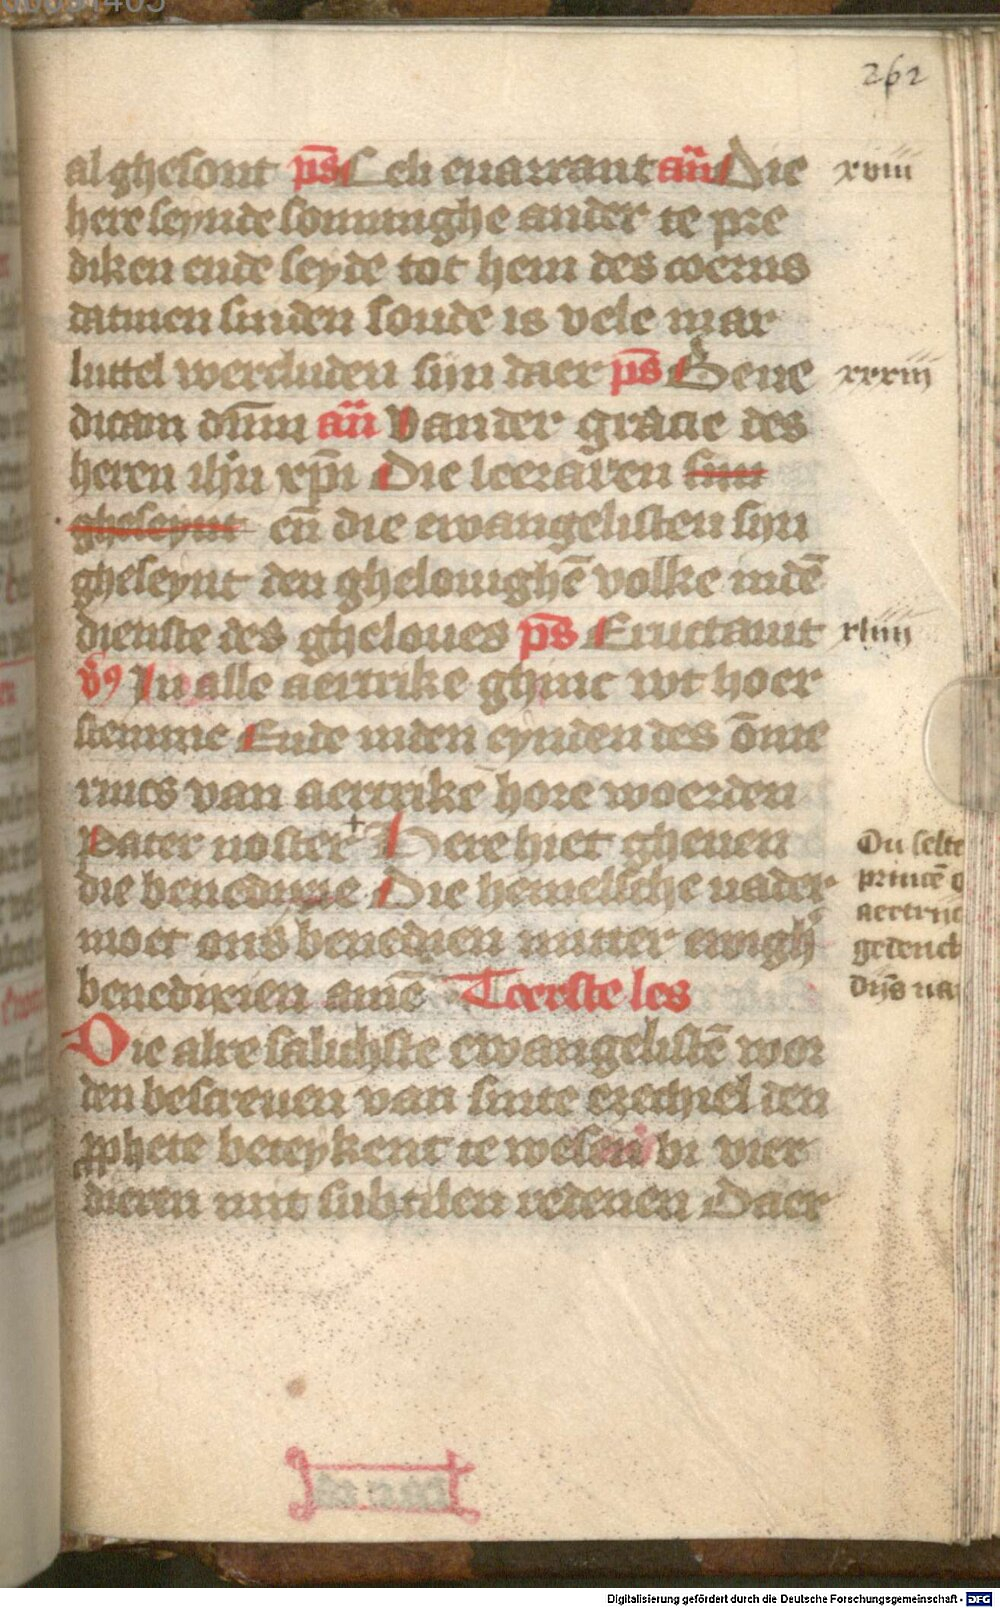 262
al ghesont ps Celi enarrant an̄ Die xviii
here seynde sommighe ander te pre
diken ende seyde tot hem des coerns
datmen sniden soude is vele mar
luttel wercluden sijn daer ps Bene xxxiii
dicam dn̄m an̄ Vander gracie des
heren ihū xpī Die leeraren sijn
gheseynt en̄ die ewangelisten sijn
gheseynt den ghelouighē volke indē
dienste des gheloues ps Eructauit xliiii
v9 In alle aertrike ghinc wt hoer
stemme Ende inden eynden des ōme
rincs van aertrike hore woerden
Pater noster + Here hiet gheuen
die benedixie Die hemelsche uader
moet ons benedien mitter ewigh
benedixien amē Teerste les
Die alre salichste ewangelistē wor
den bescreuen van sinte ezechiel den
pphete beteykent te wesen bi vier
dieren mit subtilen redenen Daer
Du selte
princē
aertrijc
gedenck
Digitalisierung gefördert durch die Deutsche Forschungsgemeinschaft - DFG